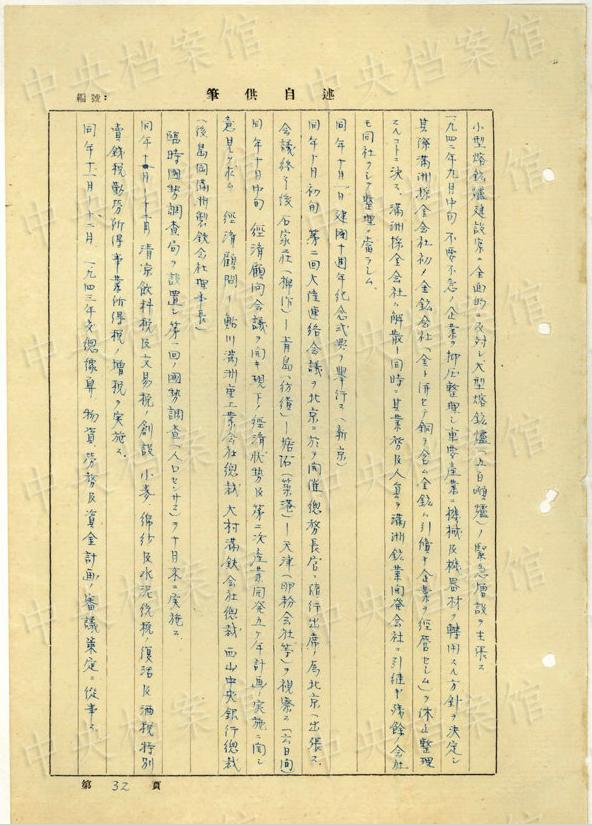 編號:
筆供自述
小型熔鉱爐建設案ニ全面的ニ反対シ大型熔鉱爐(五百噸爐)ノ緊急増設ヲ主張ス
一九四二年九月中旬 不要不急ノ企業ヲ抑圧整理シ重要産業ニ機械及機器材ヲ轉用スル方針ヲ決定シ
其際満洲採金会社初メ金鉱会社(金ト併セテ銅ヲ含ム金鉱ハ引續キ企業ヲ経営セシム)ヲ休止整理
スルコトニ決ス、満洲採金会社ハ解散ト同時ニ其業務及人員ヲ満洲鉱業開発会社ニ引継ギ残餘ノ会社
モ同社ヲシテ整理ニ當ラシム、
同年十月一日 建國十週年紀念式典ヲ擧行ス(新京)
同年十月初旬 第二回大陸連絡会議ヲ北京ニ於テ開催 總務長官ニ随行出席ノ為北京ヘ出張ス、
会議終了後石家荘(棉作)―青島(紡績)―塘沽(築港)―天津(会社等)ヲ視察ス(六日間)
同年十月中旬 経済顧問会議ヲ開キ現下ノ経済状勢及第二次産業開発五ヶ年計画ノ実施ニ関シ
意見ヲ求ム 経済顧問ハ鮎川満洲重工業会社總裁 大村満鉄会社總裁 西山中央銀行總裁
(後島岡満洲製鉄会社理事長)
臨時國勢調査局ヲ設置シ第一回ノ國勢調査(人口センサス)ヲ十月末ニ実施ス
同年十月―十一月 清凉飲料税及交易税ノ創設 小麦 綿紗及水泥統税ノ復活及酒税 特別
賣銭税 勤労所得 事業所得税ノ増税ヲ実施ス、
同年十一月―十二月 一九四三年度總豫算 物資労務及資金計画ノ審議策定ニ從事ス、
第 32 頁
中央档案馆